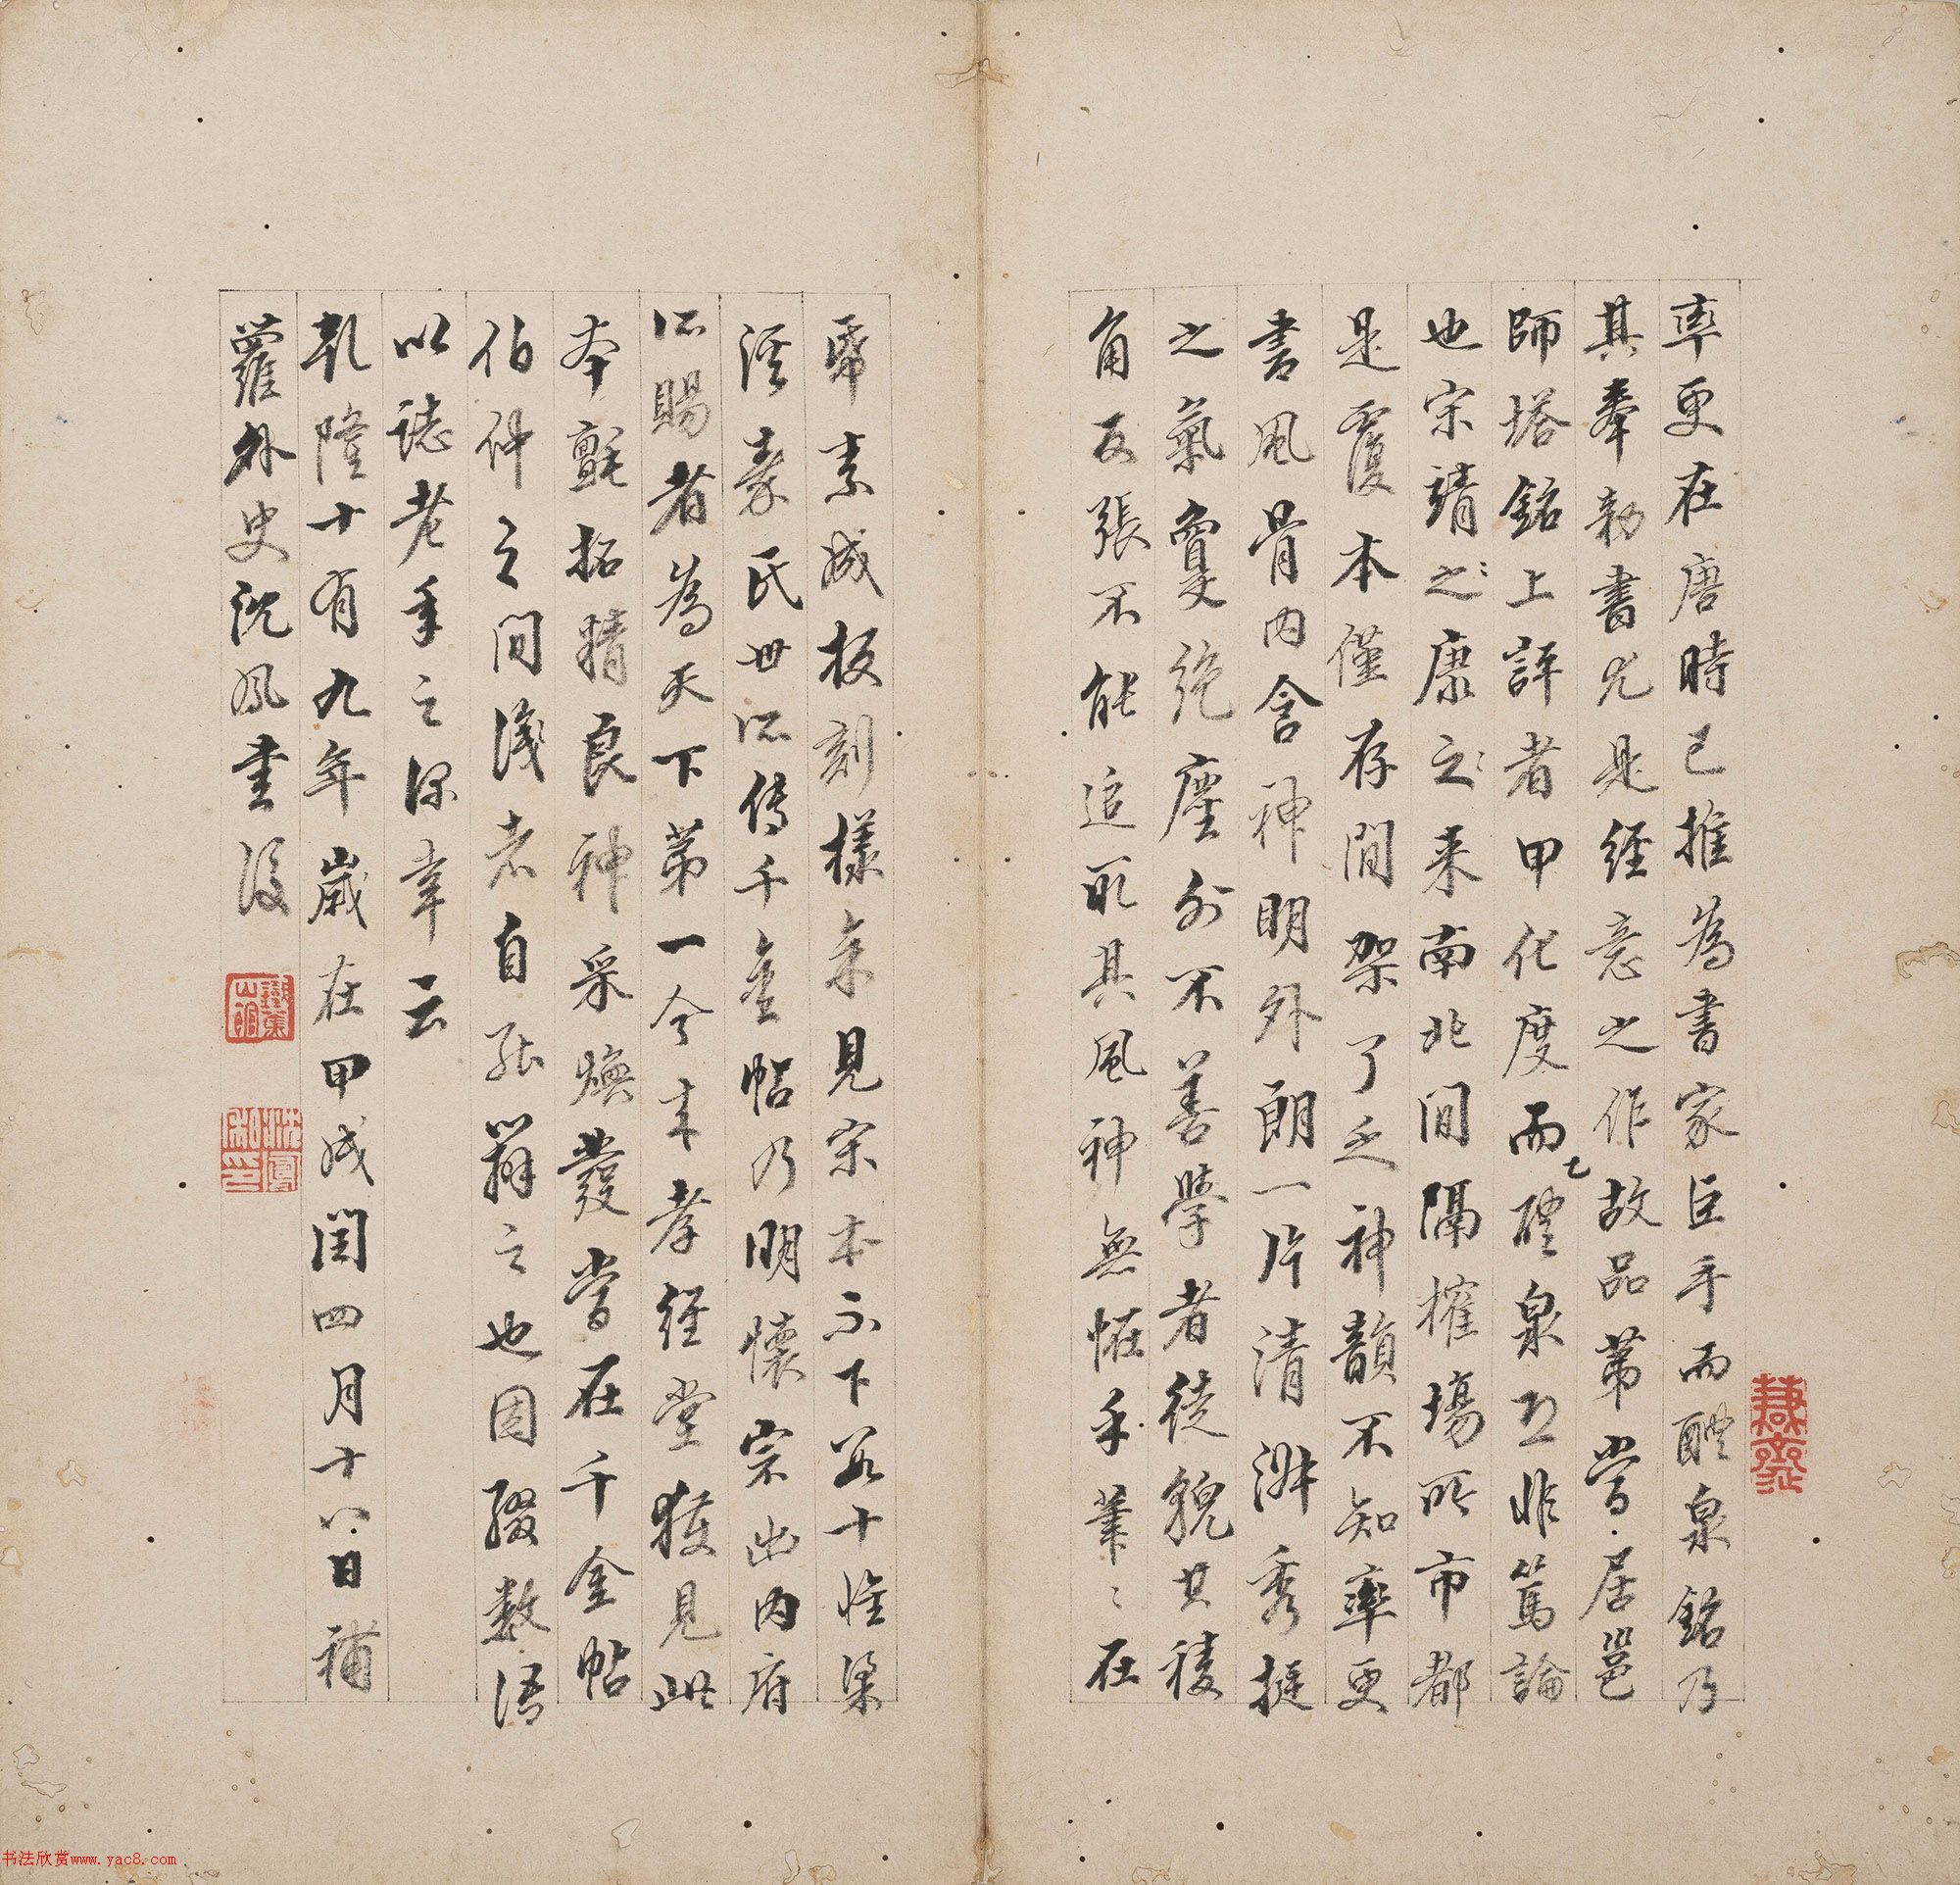 率更在唐時已推為書家巨手而醴泉銘乃
其奉勅書尤是經意之作故品第嘗居邕
師塔銘上評者甲化度而乙醴泉正非篤論
也宋靖之康之来南北間隔榷場所市都
是覆本僅存間架了乏神韻不知率更
書風骨内含神明外朗一片清渊秀挺
之氣夐絶塵外不善學者徒貌其稜
角反張不能追取其風神無怪乎筆〻在
紙素成板刻樣余見宋本不下數十惟梁
溪秦氏世所傳千金帖乃明懷宗出内府
所賜者為天下第一今来孝經堂獲見此
本氈拓精良神采煥發當在千金帖
伯仲之間識者自能辨之也因綴數語
以誌老年之深幸云
乾隆十有九年歲在甲戌閏四月十八日補
蘿外史沈鳳書後
謙齋
沈鳳私印
书法欣赏www.yac8.com